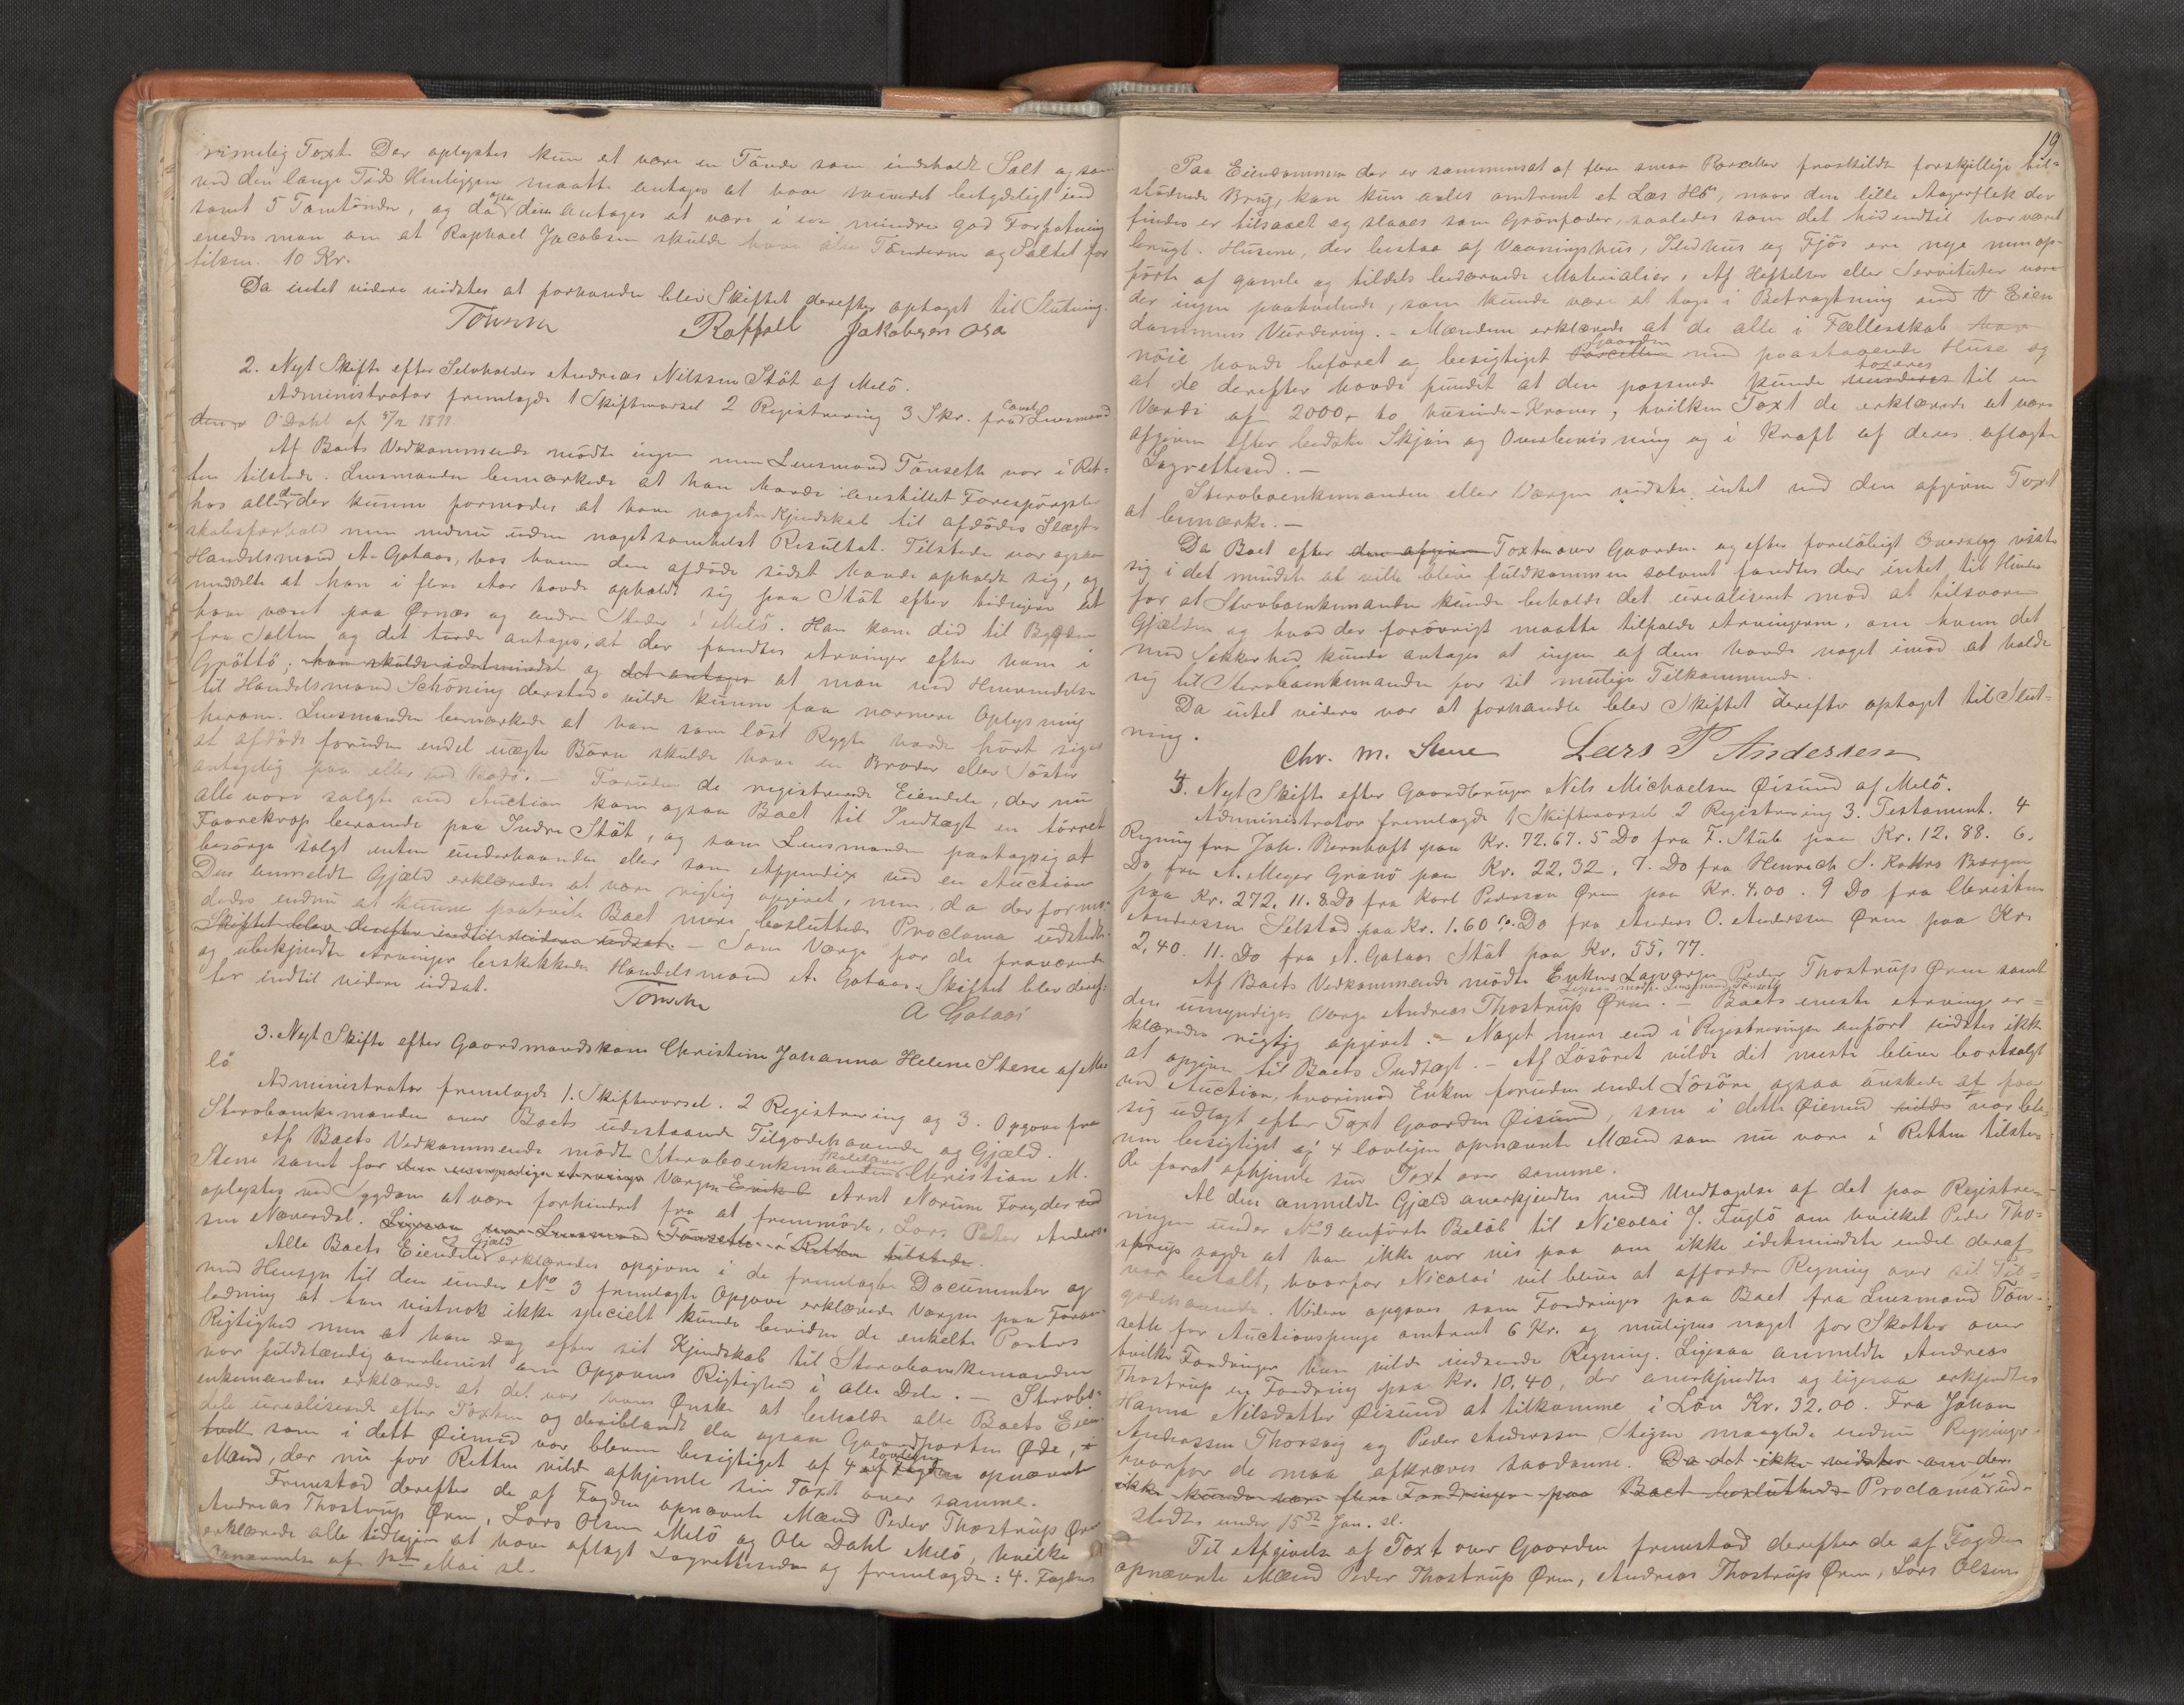 rimelig Taxt. Der oplystes kun at være en Tønde som indeholdt Salt og som
ved den lange Tids Henliggen maatte antages at have svundet betydeligt ind
samt 5 Tomtønder, og da ogsaa disse antages at være i en mindre god Forfatning
enedes man om at Raphael Jacobsen skulde have alle Tønderne og Saltet for
tilsm. 10 Kr.
Da intet videre vidstes at forhandle blev Skiftet derefter optaget til Slutning.
Tønseth Raffall Jakobsen Osa
2. Nyt Skifte efter Selvholder Andreas Nilssen Støt af Melö.
Administrator fremlagde 1 Skiftevarsel 2 Registrering 3 Skr. fra Const. Lensmand
O Dahl af 5/2 1891.
Af Boets Vedkommende mødte ingen men Lensmand Tønseth var i Ret-
ten tilstede. Lensmanden bemærkede at han havde anstillet Forespørgsler
hos alle dem der kunne formodes at have noget Kjendskab til afdødes Slægt-
skabsforhold men endnu uden nogetsomhelst Resultat. Tilstede var ogsaa
Handelsmand A. Gataas, hos hvem den afdøde sidst havde opholdt sig, og
meddelte at han i flere Aar havde opholdt sig paa Støt efter tidligere at
have været paa Ørnæs og andre Steder i Melö. Han kom did til Bygden
fra Salten og det turde antages, at der fandtes Arvinger efter ham i
Grøttö, han skulde idetmindste og det antages at man ved Henvendelse
til Handelsmand Schöning dersteds vilde kunne faa nærmere Oplysning
herom. Lensmanden bemærkede at han som løst Rygte havde hørt sige
at afdøde foruden endel uægte Børn skulde have en Broder eller Søster
antagelig paa eller ved Bodö. – Foruden de registrerede Eiendele, der nu
alle vare solgte ved Auction kom ogsaa Boet til Indtægt en tørret
Faarekrop beroende paa Indre Støt, og som Lensmanden paatog sig at
besørge solgt enten underhaanden eller som Appendix ved en Auction
Den anmeldte Gjæld erklæredes at være rigtig opgivet, men da der formo-
dedes endnu at kunne paahvile Boet mere besluttedes Proclama udstedt.
Skiftet blev derefter indtil videre udsat. – Som Værge for de fraværende
og ubekjendte Arvinger beskikkedes Handelsmand A. Gataas. Skiftet blev deref-
ter indtil videre udsat.
Tønseth A Gataas
3. Nyt Skifte efter Gaardmandskone Christine Johanna Helene Stene af Me-
lö
Administrator fremlagde 1. Skiftevarsel. 2 Registrering og 3. Opgave fra
Stervboenkemanden over Boets udestaaende Tilgodehavende og Gjæld.
Af Boets Vedkommende mødte Stervboenkemanden Skolelærer Christian M.
Stene samt for den umyndige Arving Værgen Erik Arnt Norum Forøy der ved
oplystes ved Sygdom at være forhindret fra at fremmøde, Lars Peder Anders-
sen Næverdal. Ligesaa var Lensmand Tønseth i Retten tilstede.
Alle Boets Eiendele og Gjæld erklæredes opgivne i de fremlagte Documenter og
med Hensyn til den under No 3 fremlagte Opgave erklærede Værgen paa Foran-
ledning at han vistnok ikke specielt kunde bevidne de enkelte Posters
Rigtighed men at han dog efter sit Kjendskab til Stervboenkemanden
var fuldstændig overbevist om Opgavens Rigtighed i alle Dele. – Stervbo-
enkemanden erklærede at det var hans Ønske at beholde alle Boets Eien-
dele urealiserede efter Taxten og deriblandt da ogsaa Gaardparten Øde, i
hvilk som i dette Øiemed var bleven besigtiget af 4 lovligen af Fogden opnævnte
Mænd, der nu for Retten vilde afhjemle sin Taxt over samme.
Fremstod derefter de af Fogden opnævnte Mænd Peder Thostrup Ørn
Andreas Thostrup Ørn, Lars Olsen Melö og Ole Dahl Melö, hvilke
erklærede alle tidligere at have aflagt Lagretteseden og fremlagde: 4. Fogdens
Opnævnelse af 12te Mai sl.
19
Paa Eiendommen der er sammensat af flere smaa Parceller fraskilte forskjellige til-
stødende Brug, kan kun avles omtrent et Læs Hö, naar den lille Agerflek der
findes er tilsaaet og slaaes som Grønfoder, saaledes som det hidendtil har været
brugt. Husene, der bestaa af Vaaningshus, Ildhus og Fjös ere nye men op-
förte af gamle og tildels bedærvede Materialier. Af Heftelser eller Servituter vare
der ingen paahvilende, som kunde være at tage i Betragtning ved Eien
dommens Vurdering. – Mændene erklærede at de alle i Fællesskab har
nöie havde befaret og besigtiget Parcellen Gaarden med paastaaende Huse og
at de derefter havde fundet at den passende kunde vurderes taxeres til en
Værdi af 2000, to tusinde – Kroner, hvilken Taxt de erklærede at være
afgiven efter bedste Skjön og Overbevisning og i Kraft af deres aflagte
Lagretteed. –
Stervboenkemanden eller Værgen vidste intet ved den afgivne Taxt
at bemærke. –
Da Boet efter den afgivne Taxten over Gaarden og efter foreløbigt Overslag viste
sig i det mindste at ville blive fuldkommen solvent fandtes der intet til Hinder
for at Stervboenkemanden kunde beholde det urealiseret mod at tilsvare
Gjælden og hvad der forövrigt maatte tilfalde Arvingerne, om hvem det
med Sikkerhed kunde antages at ingen af dem havde noget imod at holde
sig til Stervboenkemanden for sit mulige Tilkommende.
Da intet videre var at forhandle blev Skiftet derefter optaget til Slut-
ning.
Chr. M. Stene Lars P Andersen
4. Nyt Skifte efter Gaardbruger Nils Michaelsen Øisund af Melö.
Administrator fremlagde 1 Skiftevarsel 2 Registrering 3. Testament. 4
Regning fra Joh. Bernhoft paa Kr. 72.67. 5 Do fra F. Stub paa Kr. 12.88. 6.
Do fra A. Meyer Grönö paa Kr. 22.32. 7. Do fra Henrich S. Bergen
paa Kr. 272.11. 8. Do fra Karl Pedersen Ørn paa Kr. 4.00. 9 Do fra Christen
Anderssen Selstad paa Kr. 1.60 10. Do fra Anders O. Anderssen Ørn paa Kr.
2,40. 11. Do fra A. Gataas Støt paa Kr. 55,77.
Af Boets Vedkommende mødte Enkens Lagværge Peder Thostrup Ørn samt
Ligesaa mødte Lensmand Tønseth
den umyndiges Værge Andreas Thostrup Ørn. – Boets eneste Arving er-
klæredes rigtig opgivet. – Noget mere end i Registreringen anført vidstes ikke
at opgive til Boets Indtægt. – Af Lösöret vilde det meste blive bortsolgt
ved Auction, hvorimod Enken foruden endel Lösöre ogsaa önskede at faa
sig udlagt efter Taxt Gaarden Øisund, som i dette Øiemed var ble-
ven besigtiget af 4 lovligen opnævnte Mænd som nu vare i Retten tilste-
de forat afhjemle sin Taxt over samme.
Al den anmeldte Gjæld anerkjendtes med Undtagelse af det paa Registre-
ringen under No 9 anførte Beløb til Nicolai J. Fuglö om hvilket Peder Tho-
strup sagde at han ikke var vis paa om ikke idetmindste endel deraf
var betalt, hvorfor Nicolai vil blive at affordre Regning over sit Til-
godehavende. Videre opgaves som Fordringer paa Boet fra Lensmand Tön-
seth for Auctionspenge omtrent 6 Kr. og muligens noget for Skatter over
hvilke Fordringer han vilde indsende Regning. Ligesaa anmeldte Andreas
Thostrup en Fordring paa Kr. 10.40, der anerkjendtes og ligesaa erkjendtes
Hanna Nilsdatter Øisund at tilkomme i Løn Kr. 32.00. Fra Johan
Anderssen Thorsvig og Peder Anderssen Stigen manglede endnu Regninger
hvorfor de maa afkræves saadanne. Da det ikke vidstes om der
ikke kunde være flere Fordringer paa Boet besluttedes Proclama er ud-
stedt under 15de Jan. sl.
Til Afgivelse af Taxt over Gaarden fremstod derefter de af Fogden
opnævnte Mænd Peder Thostrup Ørn, Andreas Thostrup Ørn, Lars Olsen